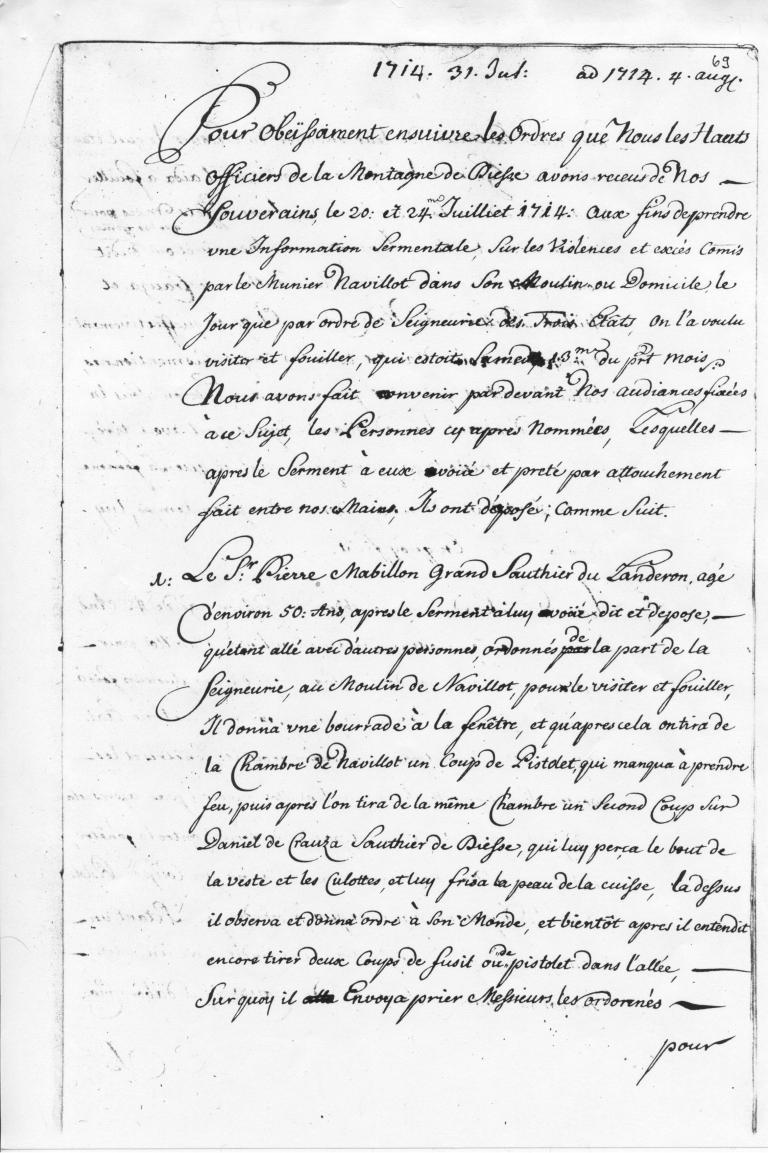 69
1714. 31. Jul: ad 1714. 4. aug.
Pour obeïssament ensuivre les Ordres que Nous les Hauts
Officiers de la Montagne de Diesse avons receus de Nos —
Souverains, le 20: et 24.me Juilliet 1714: aux fins de prendre
vne Information Sermentale, Sur les Violences et excés Comis
par le Munier Navillot dans Son Moulin ou Domicile, le
Jour que par ordre de Seigneurie des Trois Etats, On l'a voulu
visiter et fouiller, qui estoit Samedy 13.me du prt mois,
Nous avons fait convenir par devant Nos audiances fixées
à ce Sujet, les Personnes cy apres Nommées, Lesquelles —
apres le Serment à eux avoüé et preté par attouchement
fait entre nos Mains, Ils ont déposé; Comme Suit.
1: Le S.r Pierre Mabillon Grand Sauthier du Landeron, agé
d'environ 50: Ans, apres le Serment à luy avoüé, dit et depose, —
qu'étant allé avec d'autres personnes, ordonnés par de la part de la
Seigneurie, au Moulin de Navillot, pour le visiter et fouiller,
Il donna vne bourrade à la fenêtre, et qu'apres cela on tira de
la Chambre de Navillot un Coup de Pistolet, qui manqua à prendre
feu, puis apres l'on tira de la même Chambre un Second Coup Sur
Daniel de Crauza Sauthier de Diesse, qui luy perça le bout de
la veste et les Culottes, et luy frisa la peau de la cuisse, la dessus
il observa et donna ordre à Son Monde, et bientôt apres il entendit
encore tirer deux Coups de fusil ou de pistolet dans l'allée, —
Sur quoy il alla Envoya prier Messieurs les ordonnés —
pour